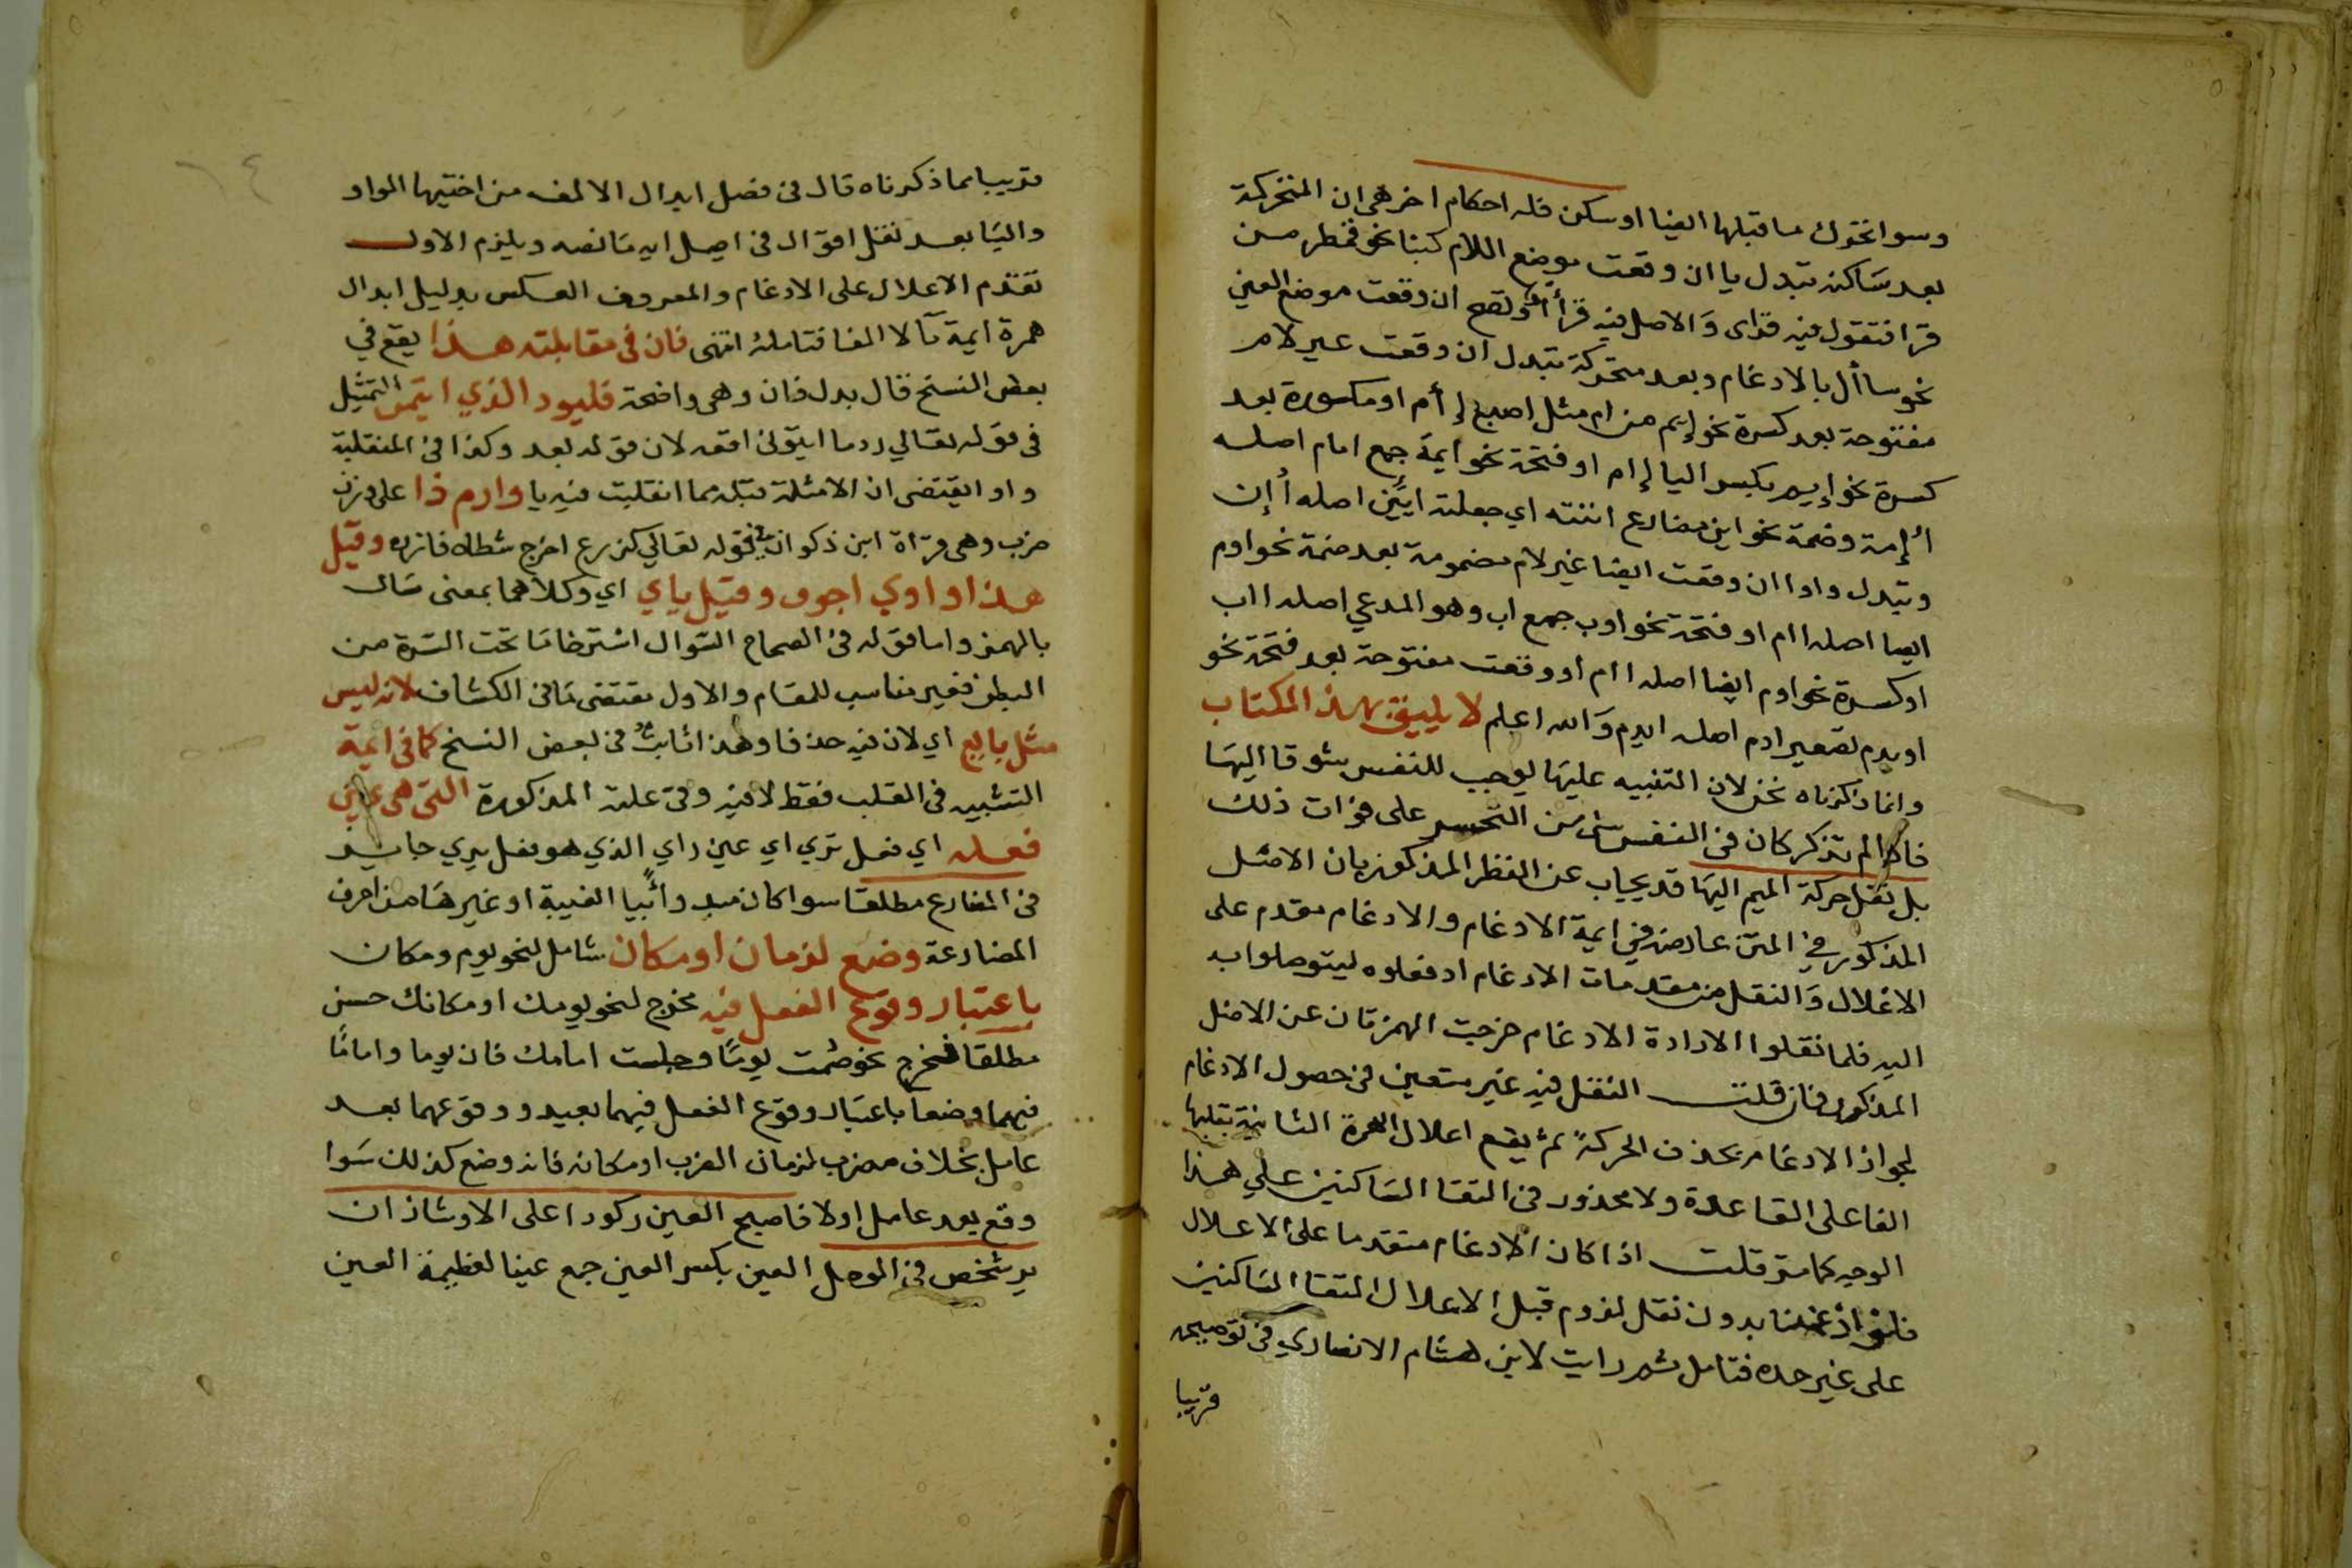 وسوا تحرك ما قبلها ايضا او سكن فله احكام اخر هي ان المتحركة
بعد ساكن تبدل يا ان وقعت موضع اللام كبنا نحو قمطر من
قرا فتقول فيه قراى والاصل فيه قرأأ وتصح ان وقعت موضع العين
نحو سأال بالادغام وبعد متحركة تبدل ان وقعت غير لام
مفتوحة بعد كسرة نحو إيم من ام مثل اصبع إأم او مكسورة بعد
كسرة نحو إيم بكسر اليا إإم او فتحة نحو ايمة جمع امام اصله
أإمة وضمة نحو اين مضارع اننته اي جعلته ايئن اصله أإن
وتبدل واوا ان وقعت ايضا غير لام مضمومة بعد ضمة نحو اوم
ايضا اصله اام او فتحة نحو اوب جمع اب وهو المدعي اصله ااب
او كسرة نحو اوم ايضا اصله اام او وقعت مفتوحة بعد فتحة نحو
اويدم تصغير ادم اصله ايدم والله اعلم لا يليق بهذا الكتاب
وانما ذكرناه نحن لان التنبيه عليها يوجب للنفس شوقا اليها
فاذا لم تذكر كان في النفس شي من التحسر على فوات ذلك
بل نقل حركة الميم اليها قد يجاب عن النظر المذكور بان الامثل
المذكور في المتن عارضه في ايمة الادغام والادغام مقدم على
الاعلال والنقل من مقدمات الادغام اذ فعلوه ليتوصلوا به
اليه فلما نقلوا الارادة الادغام خرجت الهمزتان عن الاصل
المذكور فان قلت النقل فيه غير متعين في حصول الادغام
لجواز الادغام بحذف الحركة ثم يقع اعلال الهمزة الثانية بقلبها
الفا على القاعدة ولا محذور في التقا الساكنين على هذا
الوجه كما مر قلت اذا كان الادغام متقدما على الاعلال
فلو ادغمنا بدون نقل لزوم قبل الاعلال التقا الساكنين
على غير حده فتامل ثم رايت لابن هشام الانصاري في توضيحه
قريبا
قريبا مما ذكرناه قال في فصل ابدال الالف من اختيها الواو
واليا بعد نقل اقوال في اصل ايه ما نصه ويلزم الاول
تقدم الاعلال على الادغام والمعروف العكس بدليل ابدال
همزة ايمة يآ لا الفا فتامله انتهى فان في مقابلته هذا يقع في
بعض النسخ قال بدل فان وهي واضحة فليود الذي ايتمن التمثيل
في قوله تعالي ردما ايتوني افقه لان قوله بعد وكذا في المنقلبة
واوا يقتضى ان الامثلة قبله مما انقلبت فيه يا وازم ذا على وزن
ضرب وهي قراة ابن ذكوان في قوله تعالي كزرع اخرج شطاه فازره وقيل
هذا واوي اجوف وقيل ياي اي وكلاهما بمعنى سال
بالهمز واما قوله في الصحاح السوال استرخا ما تحت السرة من
البطن فغير مناسب للمقام والاول مقتضى ما في الكشاف لانه ليس
مثل يا بيع اي لان فيه حذفا وهذا ثابت في بعض النسخ كما في ايمة
التشبيه في القلب فقط لا فيه وفي علته المذكورة التي هي عين
فعله اي فعل تري اي عين راي الذي هو فعل يري جايز
في المضارع مطلقا سواء كان مبدوأ بيا الغيبة او غيرها من احرف
المضارعة وضع لزمان او مكان شامل لنحو يوم ومكان
باعتبار وقوع الفعل فيه مخرج لنحو يومك او مكانك حسن
مطلقا فخرج نحو صمت يوما وجلست امامك فان يوما واماما
فيهما وضعا باعتبار وقوع الفعل فيهما بعيد ووقوعهما بعد
عامل بخلاف مضرب لزمان الضرب او مكانه فانه وضع كذلك سوا
وقع بعد عامل اولا فاصبح العين ركودا على الاوشاذ ان
يرشخص في الوصل العين بكسر العين جمع عينا لعظيمة العين